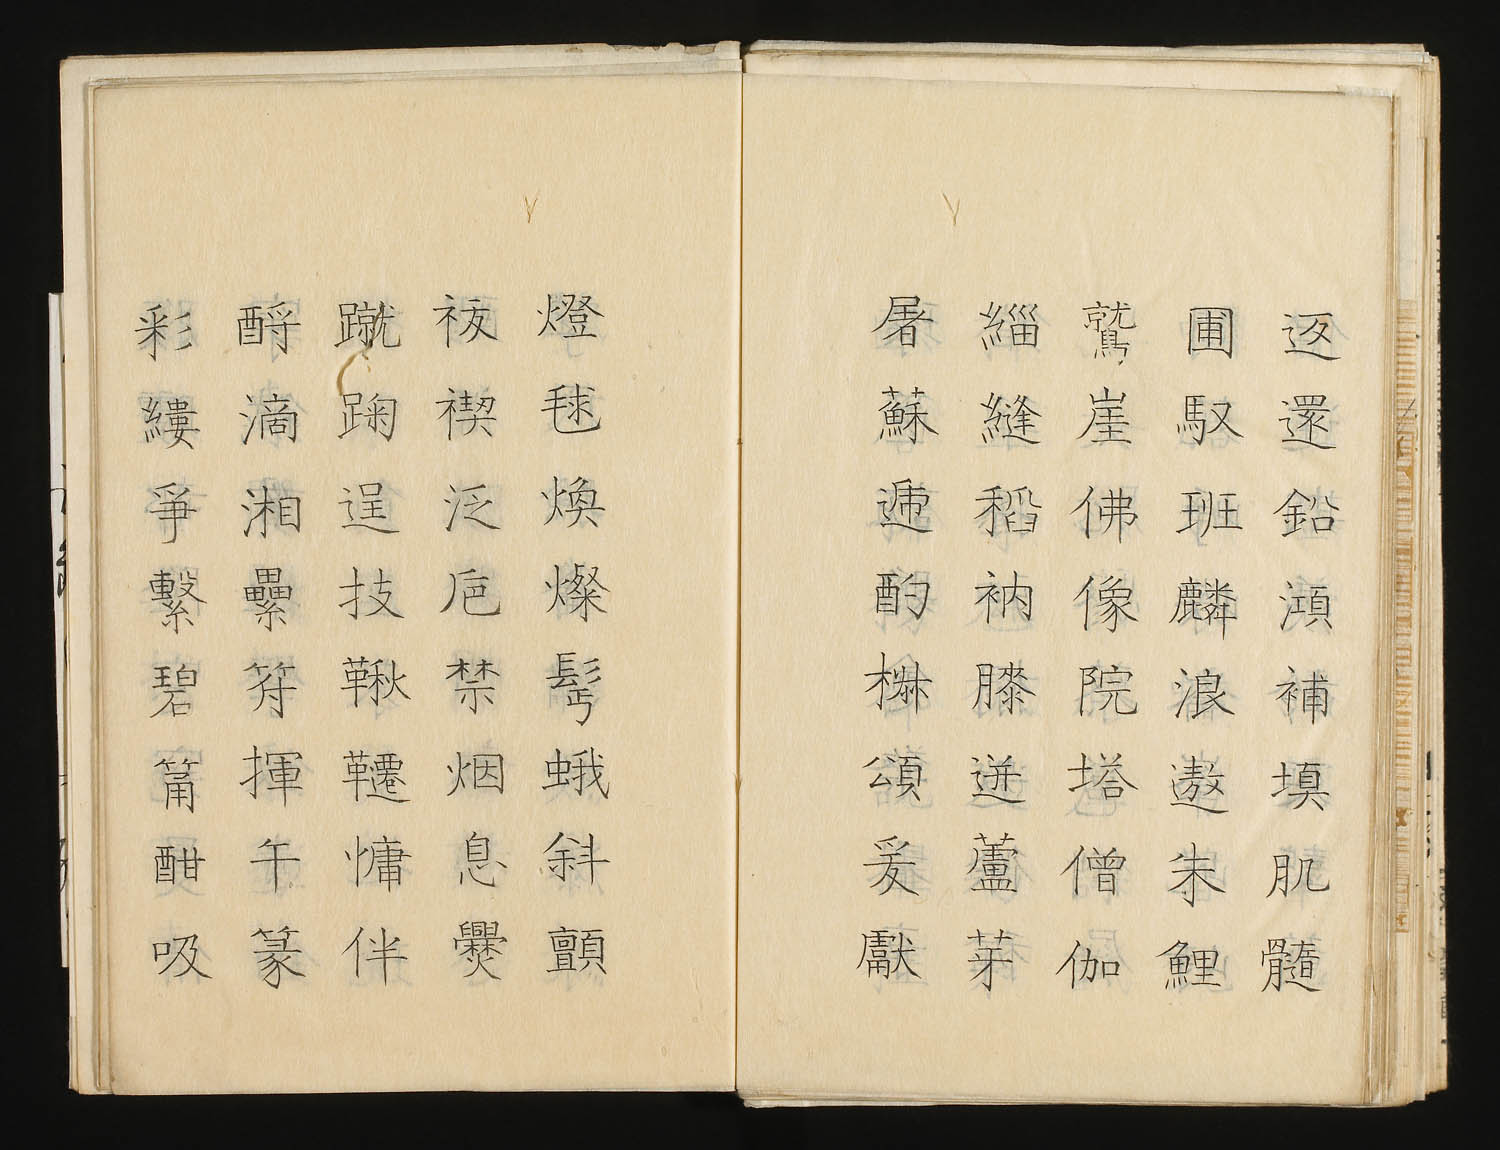 返還鉛澒補塡肌髓
圃馭班麟浪遨朱鯉
鷲崖佛像院塔僧伽
緇縫稻衲膝迸蘆芽
屠蘇遞酌椒頌爰獻
燈毬煥燦髩蛾斜顫
祓禊泛卮禁烟息爨
蹴踘逞技鞦韆慵伴
酹滴湘纍符揮午篆
彩縷爭繫碧筩酣吸